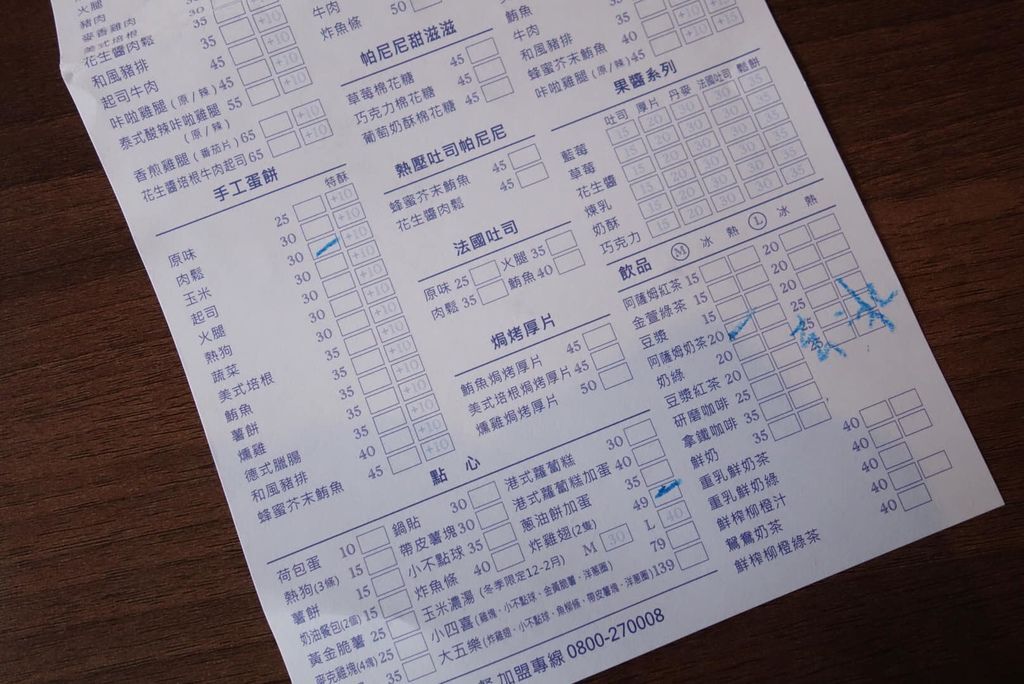 火腿
豬肉 30
麥香雞肉 35
美式培根
花生醬肉鬆 35 +10
和風豬排 35 +10
起司牛肉 45 +10
咔啦雞腿(原/辣) 45 +10
泰式酸辣咔啦雞腿 55
(原/辣)
香煎雞腿(番茄片) 65 +10
花生醬培根牛肉起司 65 +10
手工蛋餅
特酥
原味 25 +10
肉鬆 30 +10
玉米 30 +10
起司 30 +10
火腿 30 +10
熱狗 30 +10
蔬菜 30 +10
美式培根 35 +10
鮪魚 35 +10
薯餅 35 +10
燻雞 35 +10
德式臘腸 40 +10
和風豬排 40 +10
蜂蜜芥末鮪魚 45 +10
牛肉
炸魚條 50
帕尼尼甜滋滋
草莓棉花糖 45
巧克力棉花糖 45
葡萄奶酥棉花糖 45
熱壓吐司帕尼尼
蜂蜜芥末鮪魚 45
花生醬肉鬆 45
法國吐司
原味 25 火腿 35
肉鬆 35 鮪魚 40
焗烤厚片
鮪魚焗烤厚片 45
美式培根焗烤厚片 45
燻雞焗烤厚片 50
鮪魚 35
牛肉 45 +10
蜂蜜芥末鮪魚 40 +10
咔啦雞腿(原/辣) 45 +15
果醬系列
吐司 厚片 丹麥 法國吐司 鬆餅
藍莓 15 20 30 30 35
草莓 15 20 30 30 35
花生醬 15 20 30 30 35
煉乳 15 20 30 30 35
奶酥 15 20 30 30 35
巧克力 15 20 30 30 35
飲品 M 冰 熱 L 冰 熱
阿薩姆紅茶 15 20
金萱綠茶 15 20
豆漿 15 20
阿薩姆奶茶 20 25
奶綠 20 25
豆漿紅茶 20 25
研磨咖啡 25
拿鐵咖啡 35
鮮奶 35
重乳鮮奶茶 40
重乳鮮奶綠 40
鮮榨柳橙汁 40
鴛鴦奶茶 40
鮮榨柳橙綠茶 40
點 心
荷包蛋 10
熱狗(3條) 15
薯餅 15
奶油餐包(2個) 15
黃金脆薯 25
麥克雞塊(4塊) 25
35
鍋貼 30
帶皮薯塊 30
小不點球 35
炸魚條 40
港式蘿蔔糕 30
港式蘿蔔糕加蛋 40
蔥油餅加蛋 35
炸雞翅(2隻) 49
玉米濃湯(冬季限定12-2月) M 30 L 40
小四喜(雞塊、小不點球、金黃脆薯、洋蔥圈) 79
大五樂(炸雞翅、小不點球、魚柳條、帶皮薯塊、洋蔥圈) 139
加盟專線 0800-270008